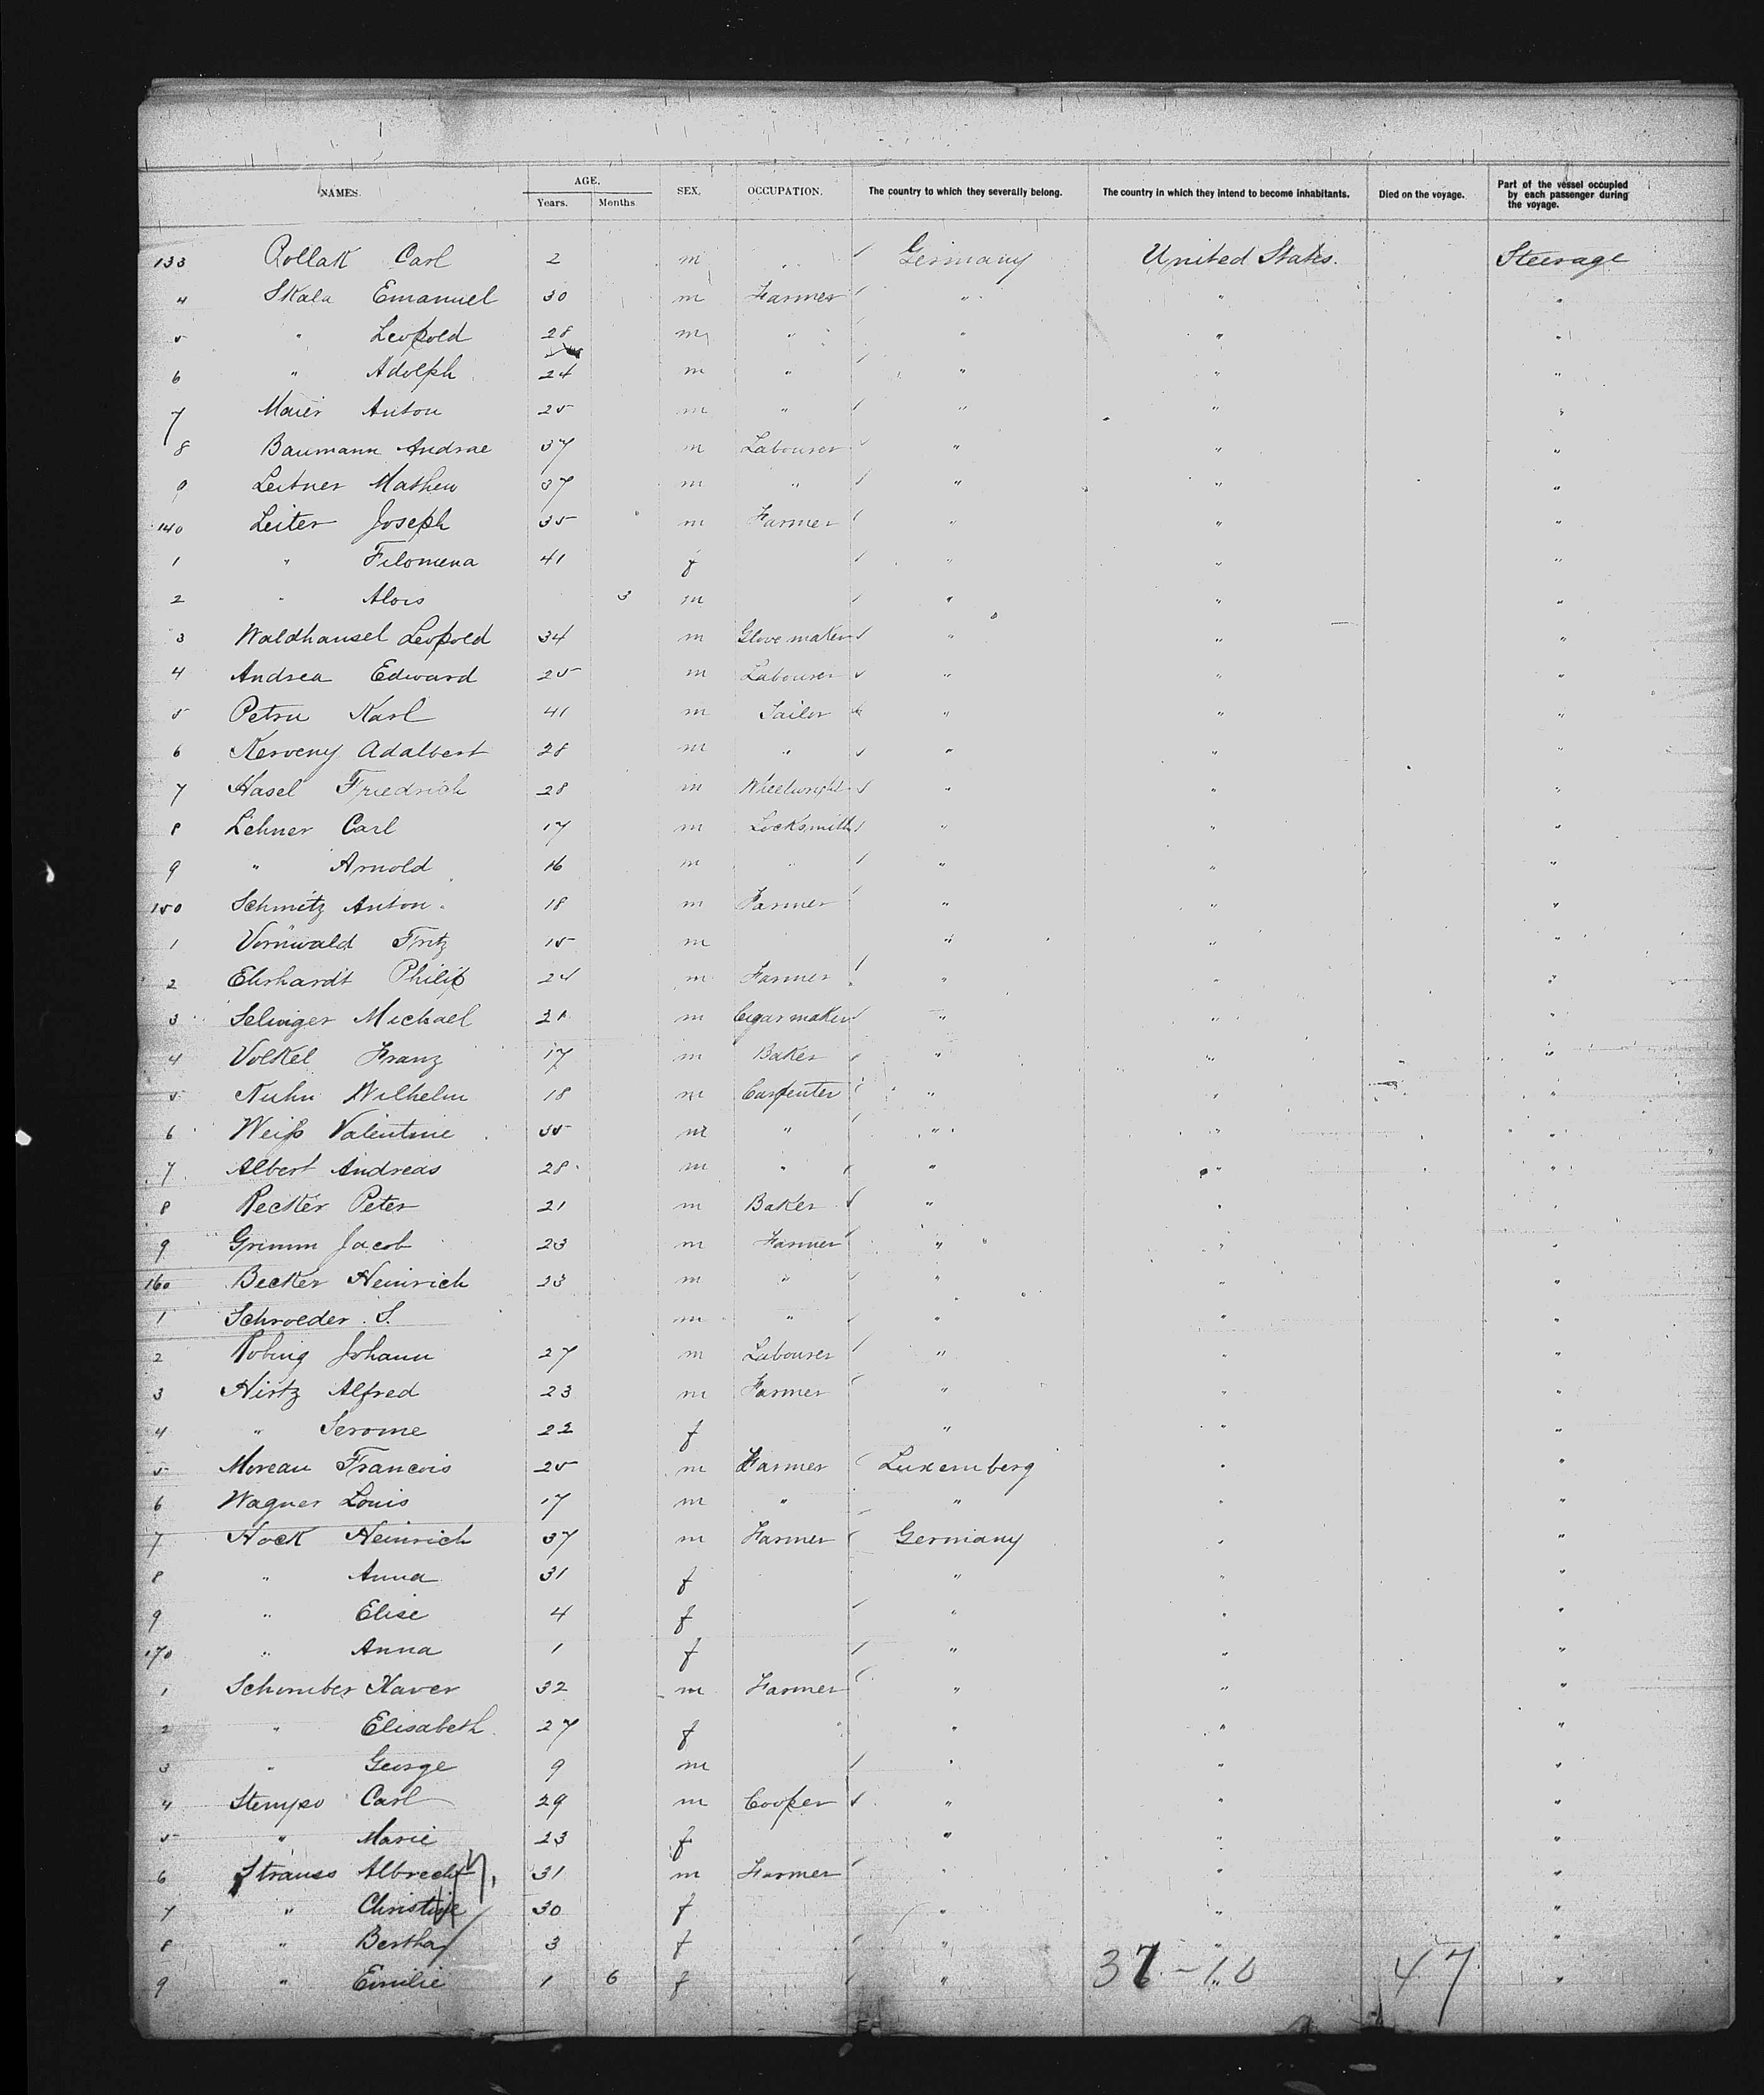 NAMES. AGE. Years. Months SEX. OCCUPATION. The country to which they severally belong. The country in which they intend to become inhabitants. Died on the voyage. Part of the vessel occupied by each passenger during the voyage.
133 Pollak Carl 2 m " Germany United States. Steerage
4 Skala Emanuel 30 m Farmer " " "
5 " Leopold 28 m " " " "
6 " Adolph 24 m " " " "
7 Maier Anton 25 m " " " "
8 Baumann Andrae 37 m Labourer " " "
9 Leitner Mathew 37 m " " " "
140 Leiter Joseph 35 m Farmer " " "
1 " Filomena 41 f " " "
2 " Alois 3 m " " "
3 Waldhausel Leopold 34 m Glove maker " " "
4 Andrea Edward 25 m Labourer " " "
5 Petru Karl 41 m Tailor " " "
6 Kerveny Adalbert 28 m " " " "
7 Hasel Friedrich 28 m Wheelwright " " "
8 Lehner Carl 17 m Locksmith " " "
9 " Arnold 16 m " " " "
150 Schmitz Anton 18 m Farmer " " "
1 Vornwald Fritz 15 m " " "
2 Ehrhardt Philip 24 m Farmer " " "
3 Selinger Michael 21 m Cigar maker " " "
4 Volkel Franz 17 m Baker " " "
5 Nuhn Wilhelm 18 m Carpenter " " "
6 Weiß Valentine 35 m " " " "
7 Albert Andreas 28 m " " " "
8 Recker Peter 21 m Baker " " "
9 Grimm Jacob 23 m Farmer " " "
160 Becker Heinrich 23 m " " " "
1 Schroeder S. m " " " "
2 Robing Johann 27 m Labourer " " "
3 Hirtz Alfred 23 m Farmer " " "
4 " Jerome 22 f " " "
5 Moreau Francois 25 m Farmer Luxemberg " "
6 Wagner Louis 17 m " " " "
7 Hock Heinrich 37 m Farmer Germany " "
8 " Anna 31 f " " "
9 " Elise 4 f " " "
170 " Anna 1 f " " "
1 Schomber Xaver 32 m Farmer " " "
2 " Elisabeth 27 f " " "
3 " George 9 m " " "
4 Stempo Carl 29 m Cooper " " "
5 " Marie 23 f " " "
6 Strauss Albrecht 31 m Farmer " " "
7 " Christine 30 f " " "
8 " Bertha 3 f " " "
9 " Emilie 1 6 f " 37-10 47 "